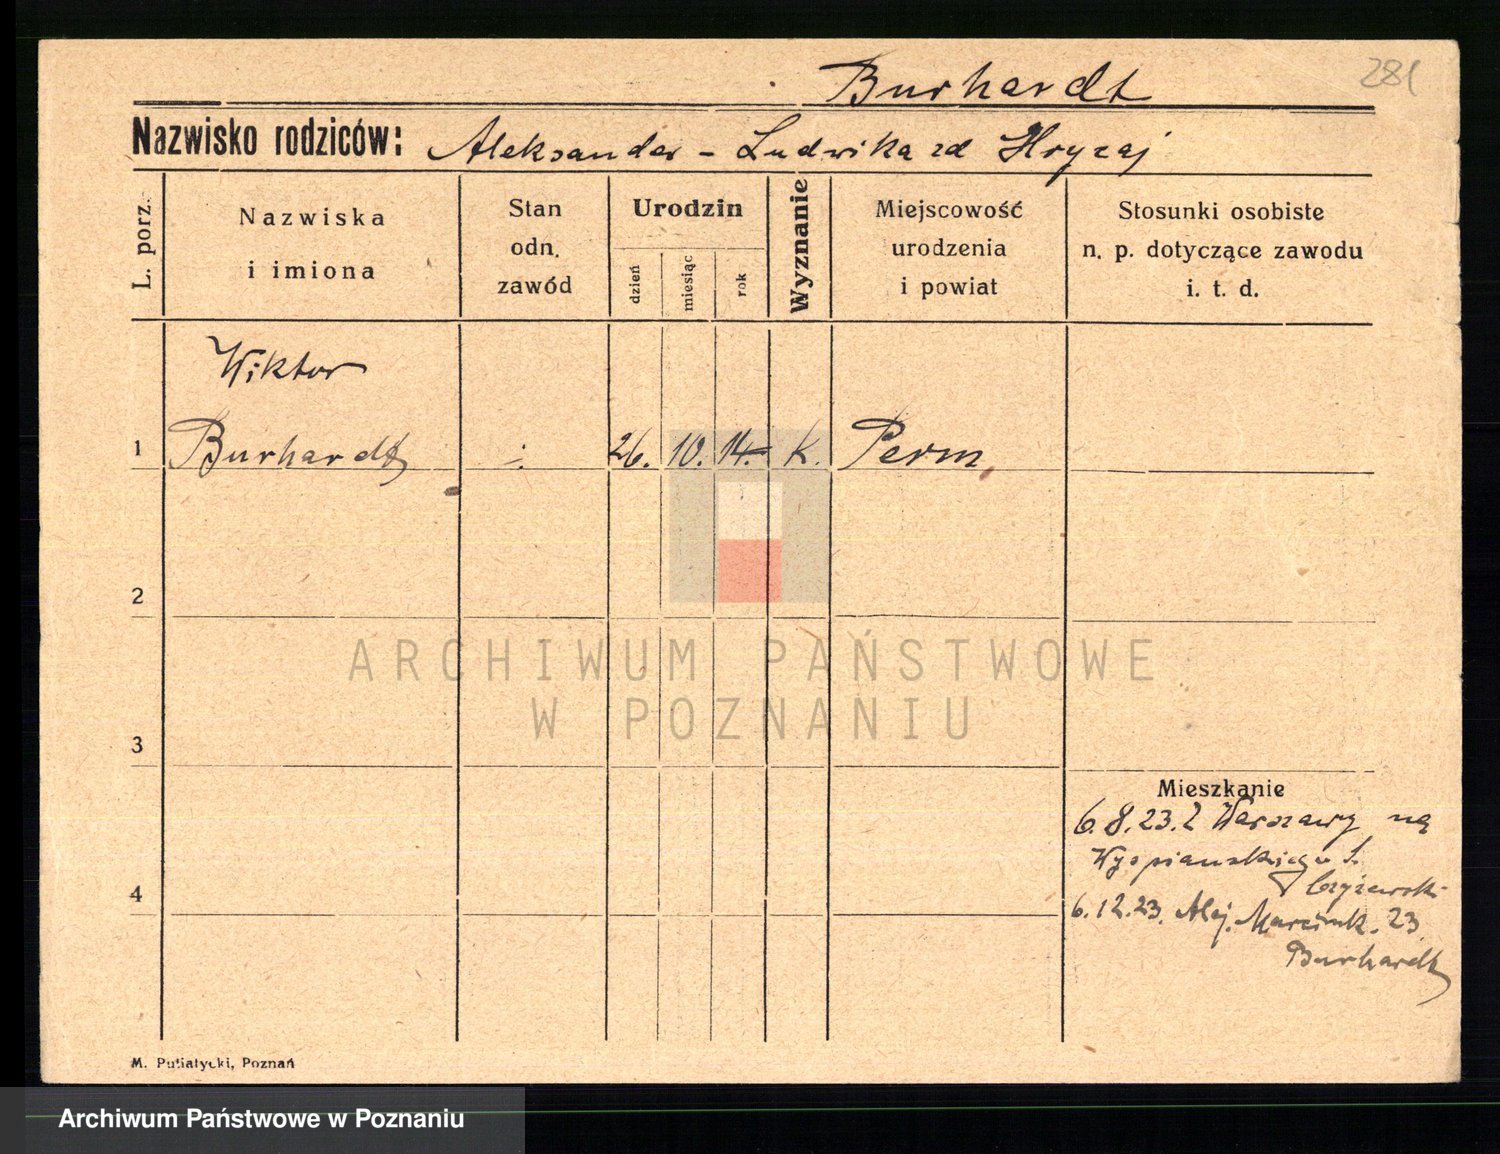 281
Burhardt
Nazwisko rodziców: Aleksander - Ludwika zd Hryzaj
L. porz.
Nazwiska
i imiona
Stan
odn.
zawód
Urodzin
dzień
miesiąc
rok
Wyznanie
Miejscowość
urodzenia
i powiat
Stosunki osobiste
n. p. dotyczące zawodu
i. t. d.
Wiktor
1 Burhardt 26. 10. 14. k. Perm
2
3
4
Mieszkanie
6.8.23. z Warszawy na
Wyspiańskiego
Czyżewski
6.12.23. Alej. Marcink. 23
Burhardt
M. Putiatycki, Poznań
ARCHIWUM PAŃSTWOWE
W POZNANIU
Archiwum Państwowe w Poznaniu